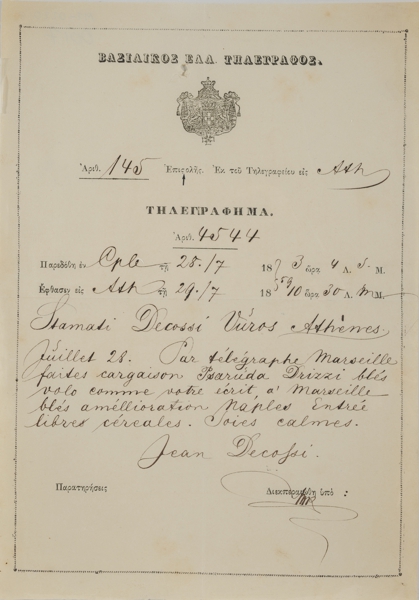 ΒΑΣΙΛΙΚΟΣ ΕΛΛ. ΤΗΛΕΓΡΑΦΟΣ.
Ἀριθ. 145 Ἐπιστολῆς. Ἐκ τοῦ Τηλεγραφείου εἰς Ath
ΤΗΛΕΓΡΑΦΗΜΑ.
Ἀριθ. 4544
Παρεδόθη ἐν Cple τῇ 28./7 18 3 ὥρα 4 Λ. S. M.
Ἔφθασεν εἰς Ath τῇ 29./7 18 59 10 ὥρα 30 Λ. M.
Stamati Decossi Vúros Athènes
Juillet 28. Par télégraphe Marseille
faites cargaison Drizzi blés
volo comme votre écrit, a' Marseille
blés amélioration Naples Entrée
libres céreales. Soies calmes.
Jean Decossi.
Παρατηρήσεις Διεκπεραιώθη ὑπὸ :